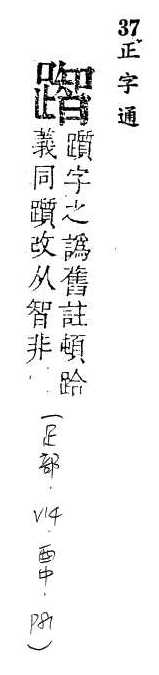 37正字通
躓字之譌舊註頓跲
義同躓改从智非
(足部．V14．酉中．P81)